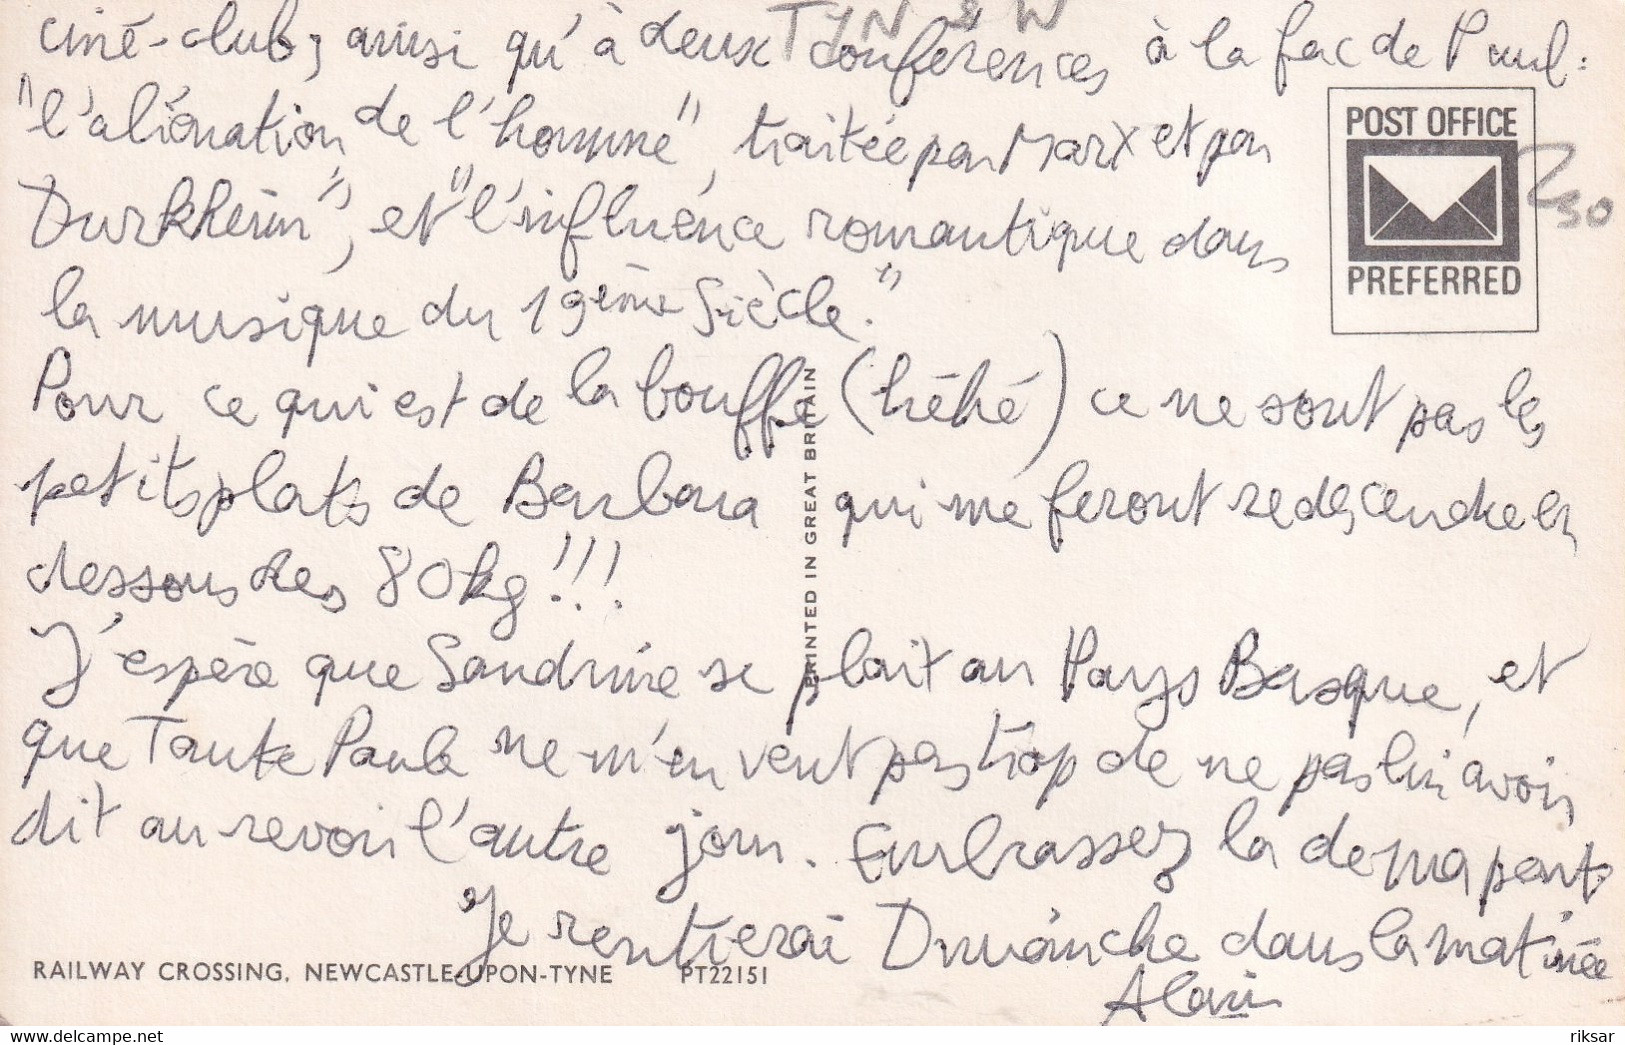 TYN & W
ciné-club, ainsi qu'à deux conférences à la fac de Paul :
"l'aliénation de l'homme", traitée par Marx et par
Durkheim", et "l'influence romantique dans
la musique du 19ème Siècle."
Pour ce qui est de la bouffe (héhé) ce ne sont pas les
petits plats de Barbara qui me feront redescendre en
dessous des 80kg!!!
J'espère que Sandrine se plait au Pays Basque, et
que Tante Paule ne m'en veut pas trop de ne pas lui avoir
dit au revoir l'autre jour. Embrassez la de ma part.
Je rentrerai Dimanche dans la matinée
Alain
POST OFFICE
PREFERRED
230
PRINTED IN GREAT BRITAIN
RAILWAY CROSSING, NEWCASTLE-UPON-TYNE PT22151
www.delcampe.net
riksar